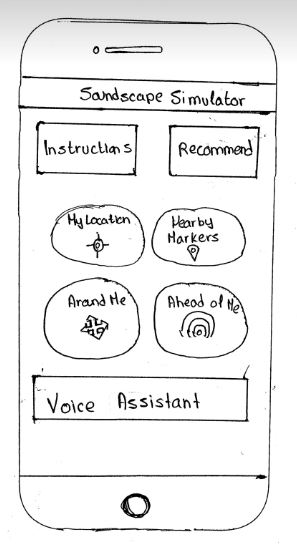 Sandscape Simulator
Instructions
Recommend
My Location
Nearby
Markers
Around Me
Ahead of Me
Voice Assistant